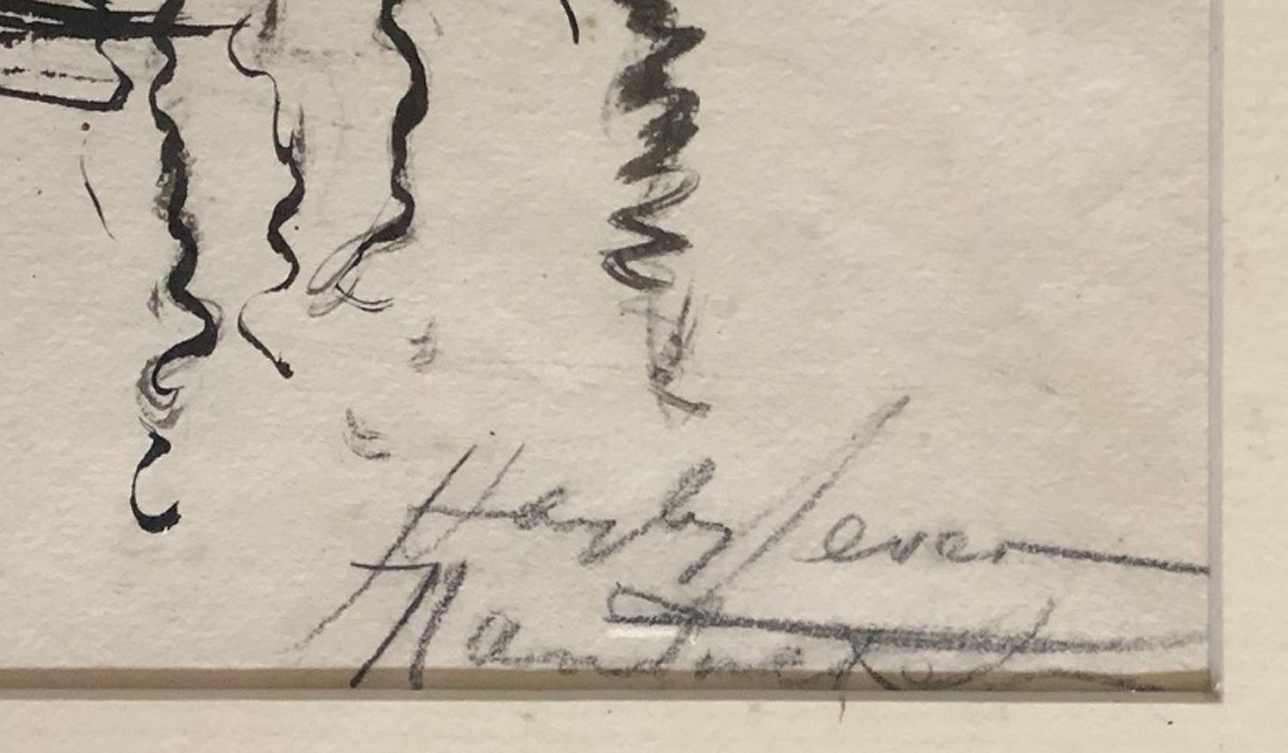 Hayley Lever
Nantucket